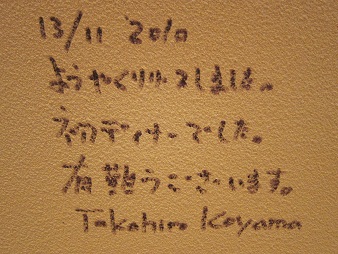 13/11 2010
ようやく しました。
初ディナーでした。
有難うございます。
Takahiro Koyama